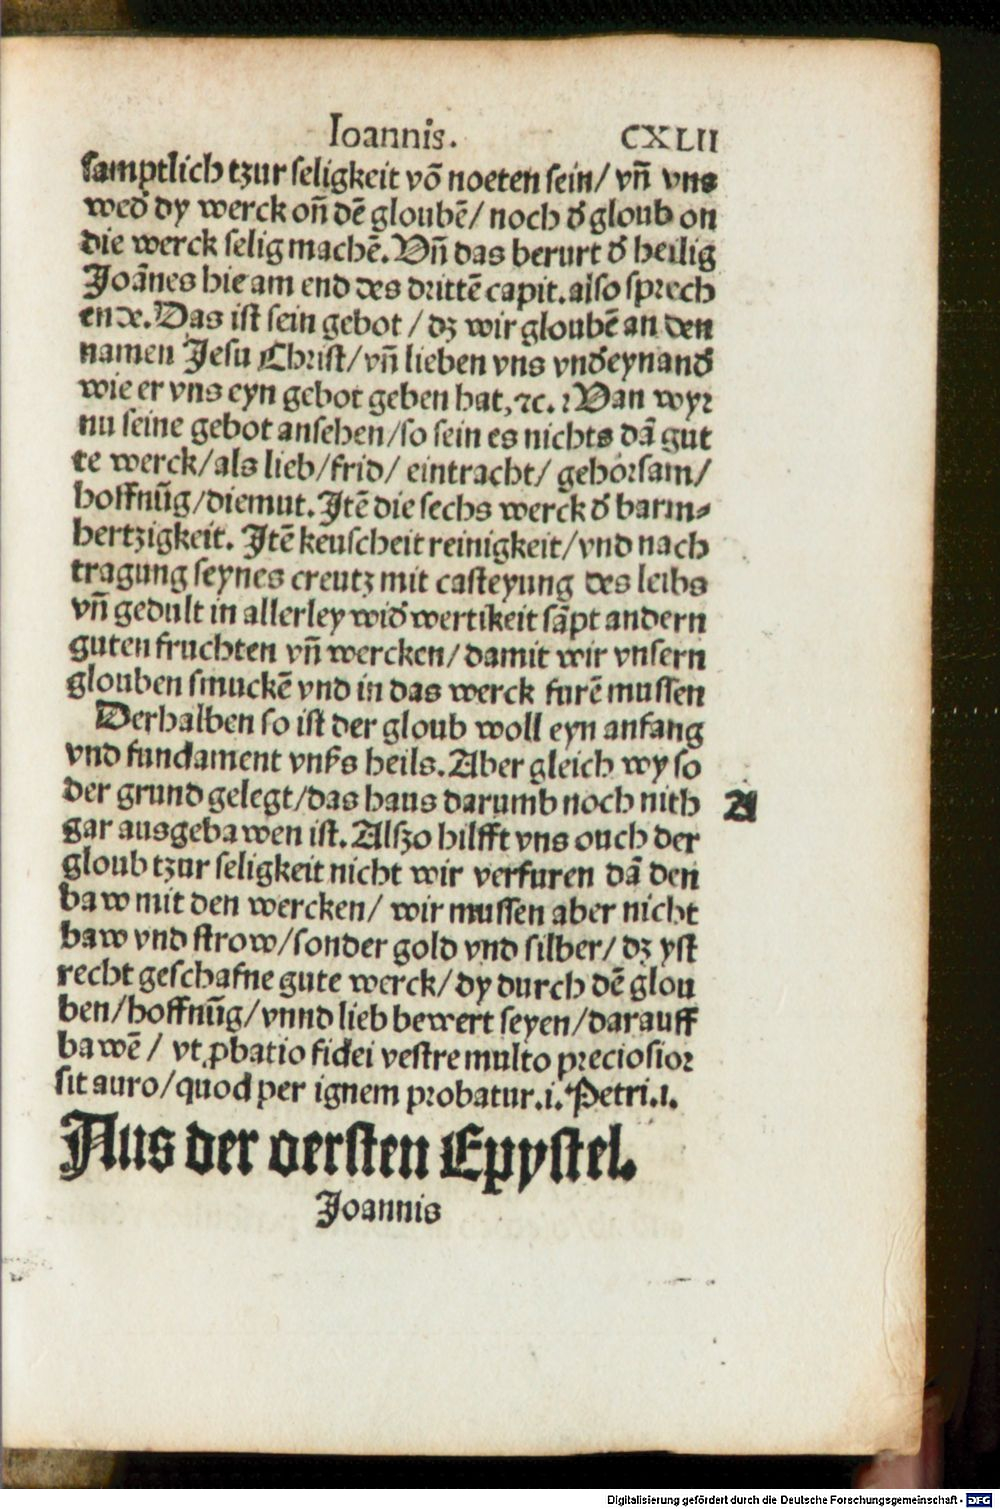 Ioannis. CXLII
samptlich tzur seligkeit vō noeten sein/ vn̄ vns
wed̄ dy werck on̄ dē gloubē/ noch d̄ gloub on
die werck selig machē. Vn̄ das berurt d̄ heilig
Joānes hie am end des drittē capit. also sprech
ende. Das ist sein gebot / dz wir gloubē an den
namen Jesu Christ/ vn̄ lieben vns vnd̄eynand̄
wie er vns eyn gebot geben hat, ⁊c. Wan wyr
nu seine gebot ansehen/ so sein es nichts dā gut
te werck/ als lieb/ frid/ eintracht/ gehorsam/
hoffnūg/ diemut. Jtē die sechs werck d̄ barm⸗
hertzigkeit. Jtē keuscheit reinigkeit/ vnd nach
tragung seynes creutz mit casteyung des leibs
vn̄ gedult in allerley wid̄wertikeit sāpt andern
guten fruchten vn̄ wercken/ damit wir vnsern
glouben smuckē vnd in das werck furē mussen
Derhalben so ist der gloub woll eyn anfang
vnd fundament vnsers heils. Aber gleich wy so
der grund gelegt/ das haus darumb noch nith A
gar ausgebawen ist. Alszo hilfft vns ouch der
gloub tzur seligkeit nicht wir verfuren dā den
baw mit den wercken/ wir mussen aber nicht
haw vnd strow/ sonder gold vnd silber/ dz yst
recht geschafne gute werck/ dy durch dē glou
ben/ hoffnūg/ vnnd lieb bewert seyen/ darauff
bawē / vt ꝓbatio fidei vestre multo preciosior
sit auro/ quod per ignem probatur. i. Petri. 1.
Aus der oersten Epystel.
Joannis
Digitalisierung gefördert durch die Deutsche Forschungsgemeinschaft - DFG